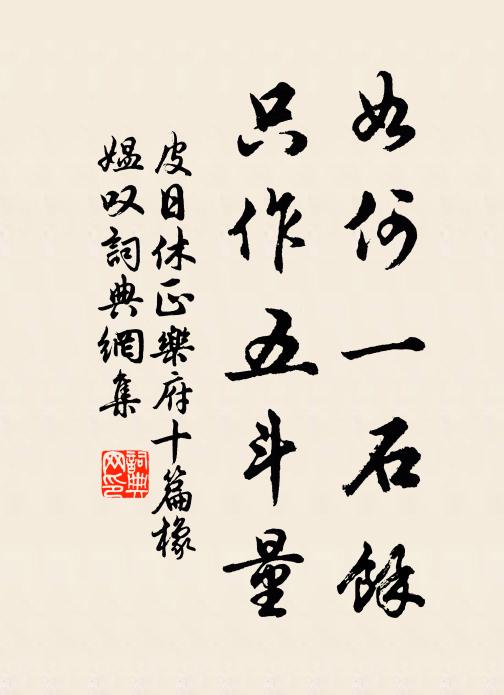 如何一石餘
只作五斗量
皮日休正樂府十篇橡
媼叹詞典網集
詞典
网印